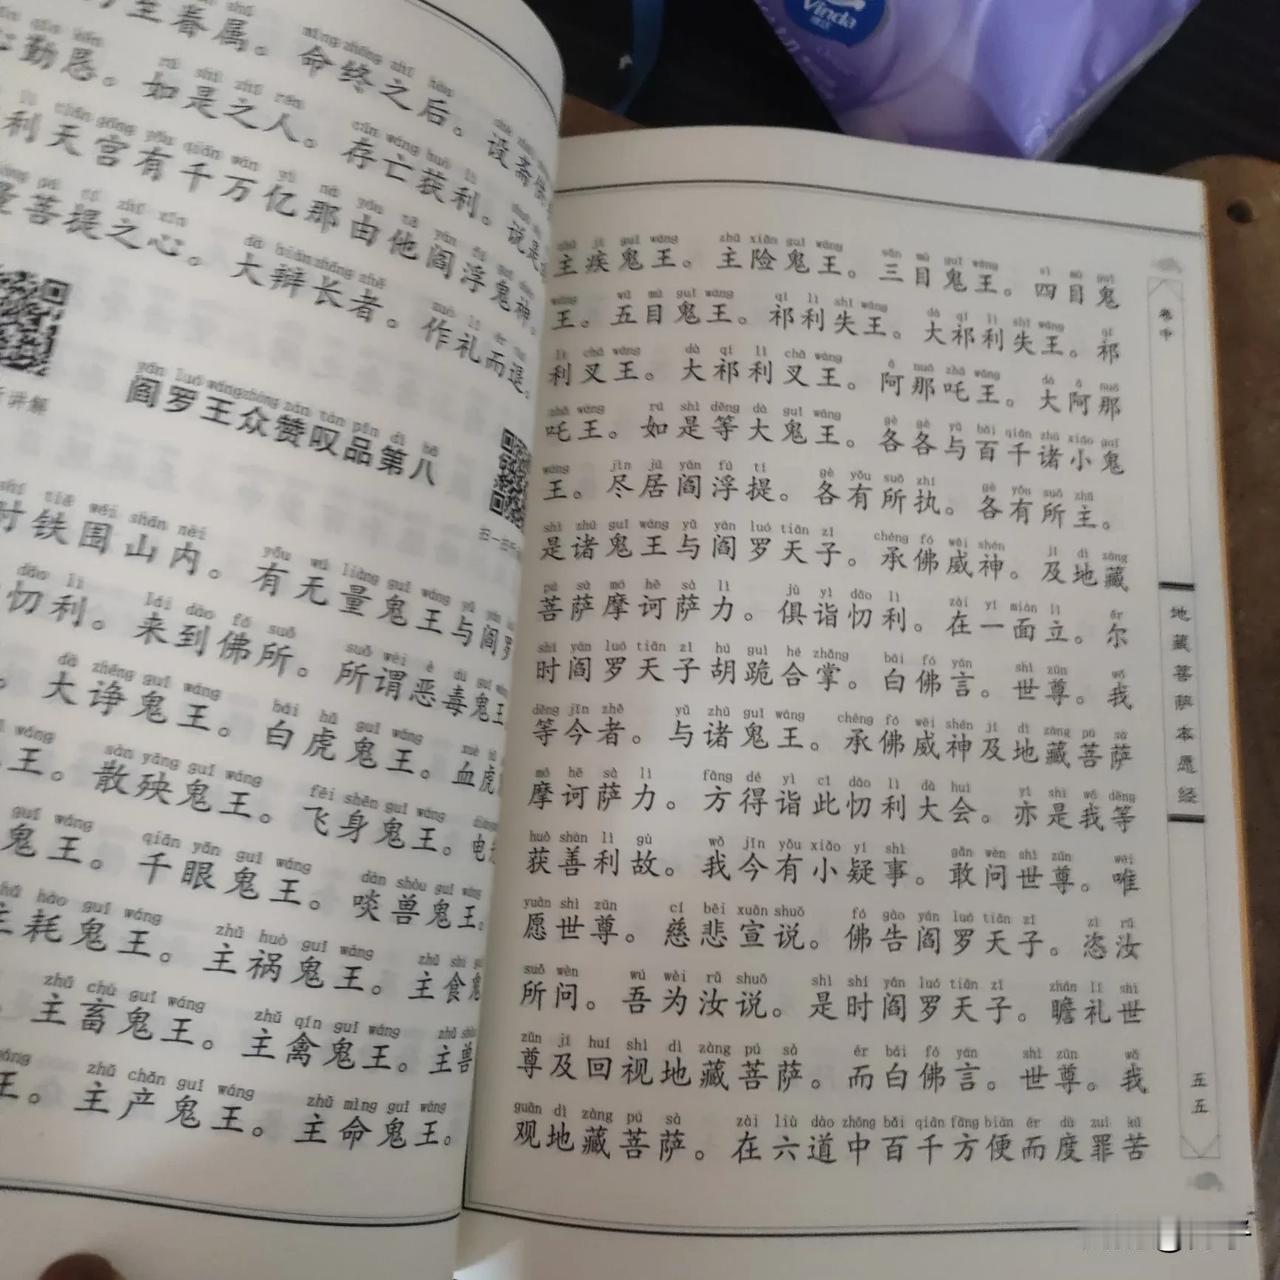 生眷属。命终之后。设斋
勤恳。如是之人。存亡获利。说是
利天宫有千万亿那由他阎浮鬼神。
菩提之心。大辩长者。作礼而退。
讲解
yán luó wáng zhòng zàn tàn pǐn dì bā
阎罗王众赞叹品第八
扫一扫
时铁围山内。有无量鬼王与阎罗
忉利。来到佛所。所谓恶毒鬼王
大诤鬼王。白虎鬼王。血虎
王。散殃鬼王。飞身鬼王。电
鬼王。千眼鬼王。啖兽鬼王。
主耗鬼王。主祸鬼王。主食鬼
主畜鬼王。主禽鬼王。主兽
王。主产鬼王。主命鬼王。
zhǔ jí guǐ wáng zhǔ xiǎn guǐ wáng sān mù guǐ wáng sì mù guǐ
主疾鬼王。主险鬼王。三目鬼王。四目鬼
wáng wǔ mù guǐ wáng qí lì shī wáng dà qí lì shī wáng qí
王。五目鬼王。祁利失王。大祁利失王。祁
lì chā wáng dà qí lì chā wáng ā nuó zhā wáng dà ā nuó
利叉王。大祁利叉王。阿那吒王。大阿那
zhā wáng rú shì děng dà guǐ wáng gè gè yǔ bǎi qiān zhū xiǎo guǐ
吒王。如是等大鬼王。各各与百千诸小鬼
wáng jìn jū yán fú tí gè yǒu suǒ zhí gè yǒu suǒ zhǔ
王。尽居阎浮提。各有所执。各有所主。
shì zhū guǐ wáng yǔ yán luó tiān zǐ chéng fó wēi shén jí dì zàng
是诸鬼王与阎罗天子。承佛威神。及地藏
pú sà mó hē sà lì jù yì dāo lì zài yí miàn lì ěr
菩萨摩诃萨力。俱诣忉利。在一面立。尔
shí yán luó tiān zǐ hú guì hé zhǎng bái fó yán shì zūn wǒ
时阎罗天子胡跪合掌。白佛言。世尊。我
děng jīn zhě yǔ zhū guǐ wáng chéng fó wēi shén jí dì zàng pú sà
等今者。与诸鬼王。承佛威神及地藏菩萨
mó hē sà lì fāng dé yì cǐ dāo lì dà huì yì shì wǒ děng
摩诃萨力。方得诣此忉利大会。亦是我等
huò shàn lì gù wǒ jīn yǒu xiǎo yí shì gǎn wèn shì zūn wéi
获善利故。我今有小疑事。敢问世尊。唯
yuàn shì zūn cí bēi xuān shuō fó gào yán luó tiān zǐ zì rǔ
愿世尊。慈悲宣说。佛告阎罗天子。恣汝
suǒ wèn wú wèi rǔ shuō shì shí yán luó tiān zǐ zhān lǐ shì
所问。吾为汝说。是时阎罗天子。瞻礼世
zūn jí huí shì dì zàng pú sà ér bái fó yán shì zūn wǒ
尊及回视地藏菩萨。而白佛言。世尊。我
guān dì zàng pú sà zài liù dào zhōng bǎi qiān fāng biàn ér dù zuì kǔ
观地藏菩萨。在六道中百千方便而度罪苦
卷中
地藏菩萨本愿经
五五
Vinda
维达